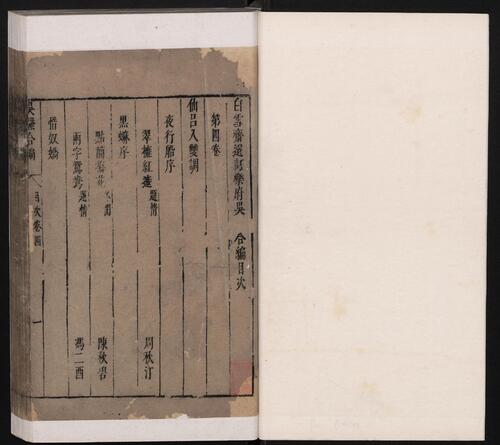 白雪齋選訂樂府吳 合編目次
第四卷
仙呂入雙調
夜行船序
翠擁紅遮 題情 周秋汀
黑蠊序
點簡 花 陳秋碧
兩字鴛鴦 題情 馮二酉
惜奴嬌
合編 目次卷四 一